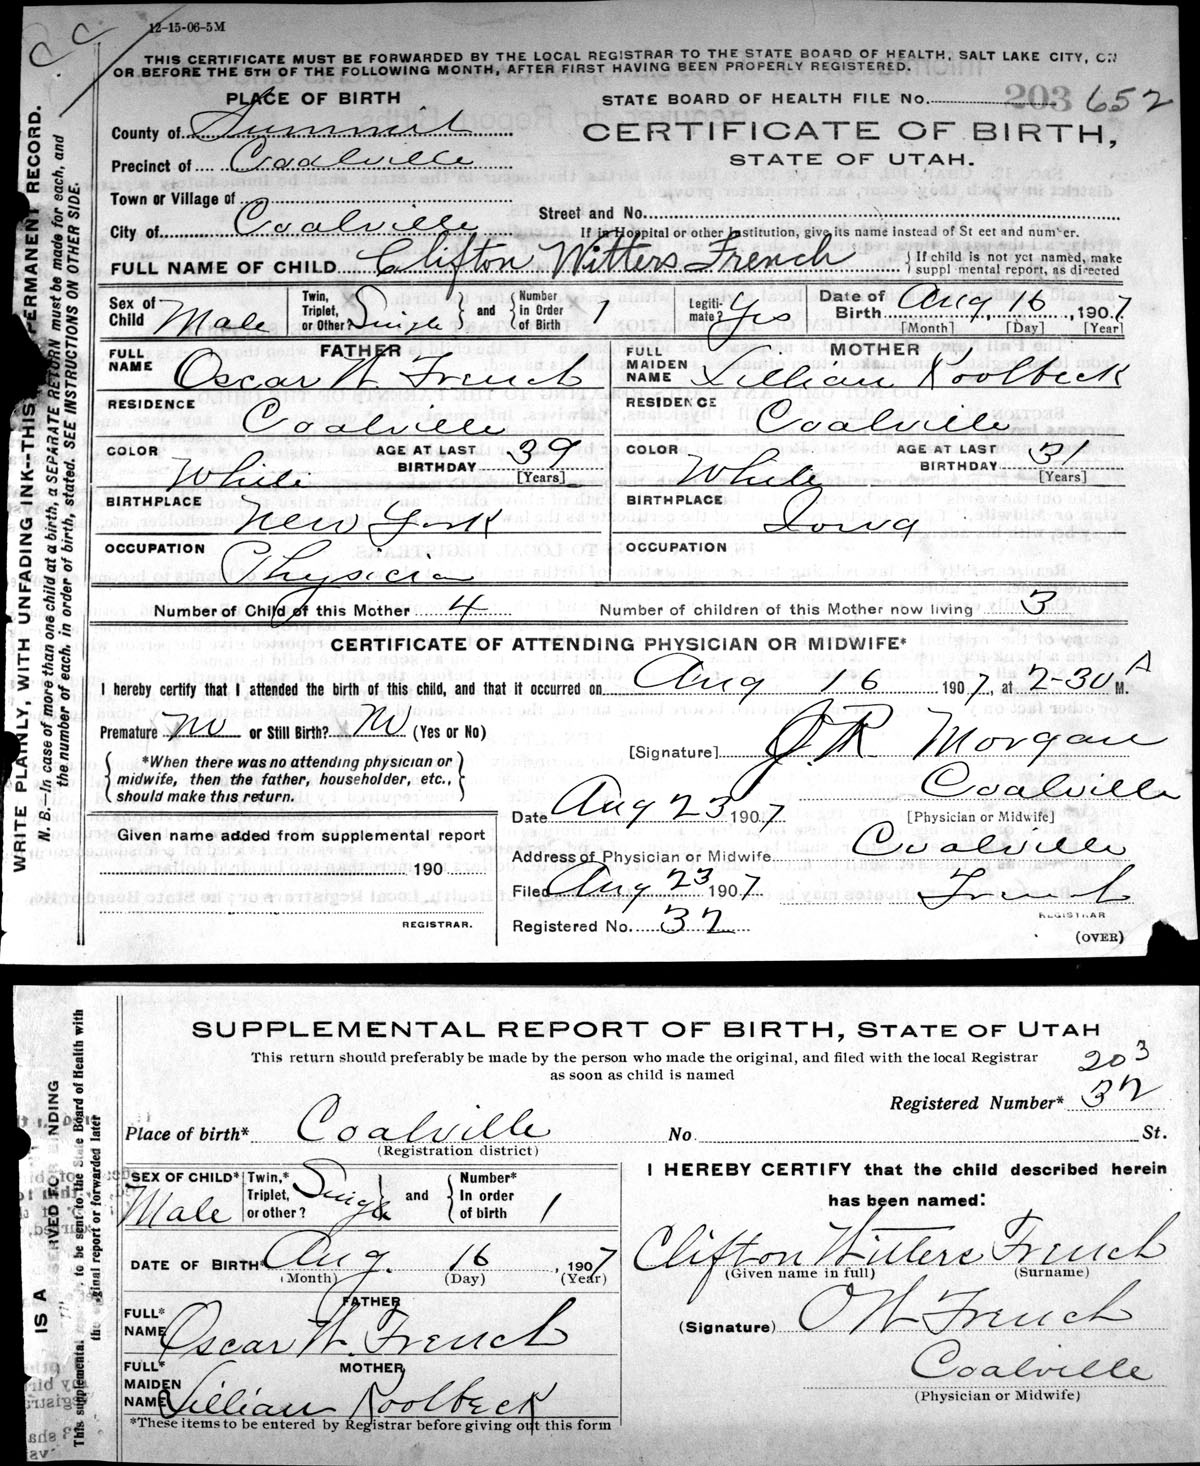 12-15-06-5M
C C
THIS CERTIFICATE MUST BE FORWARDED BY THE LOCAL REGISTRAR TO THE STATE BOARD OF HEALTH, SALT LAKE CITY, ON
OR BEFORE THE 5TH OF THE FOLLOWING MONTH, AFTER FIRST HAVING BEEN PROPERLY REGISTERED.
PLACE OF BIRTH
STATE BOARD OF HEALTH FILE No. 203 652
County of Summit
CERTIFICATE OF BIRTH,
Precinct of Coalville
STATE OF UTAH.
Town or Village of
Street and No.
City of Coalville
If in Hospital or other Institution, give its name instead of St eet and num'er.
FULL NAME OF CHILD Clifton Witters French
{ If child is not yet named, make
suppl mental report, as directed
Sex of Child Male
Twin, Triplet, or Other? Single and { Number in Order of Birth 1
Legiti-mate? Yes
Date of Birth Aug, 16, 1907
[Month] [Day] [Year]
FATHER
FULL NAME Oscar W. French
MOTHER
FULL MAIDEN NAME Lillian Koolbeck
RESIDENCE Coalville
RESIDENCE Coalville
COLOR White AGE AT LAST BIRTHDAY 39 [Years]
COLOR White AGE AT LAST BIRTHDAY 31 [Years]
BIRTHPLACE New York
BIRTHPLACE Iowa
OCCUPATION Physician
OCCUPATION
Number of Child of this Mother 4 Number of children of this Mother now living 3
CERTIFICATE OF ATTENDING PHYSICIAN OR MIDWIFE*
I hereby certify that I attended the birth of this child, and that it occurred on Aug 16 1907, at 2-30 A M.
Premature No or Still Birth? No (Yes or No)
[Signature] J. R. Morgan
{ *When there was no attending physician or
midwife, then the father, householder, etc.,
should make this return. }
Coalville
[Physician or Midwife]
Date Aug 23 1907
Given name added from supplemental report
190
REGISTRAR.
Address of Physician or Midwife Coalville
Filed Aug 23 1907 French
REGISTRAR
Registered No. 32
(OVER)
WRITE PLAINLY, WITH UNFADING INK--THIS PERMANENT RECORD.
N. B.—In case of more than one child at a birth, a SEPARATE RETURN must be made for each, and
the number of each, in order of birth, stated. SEE INSTRUCTIONS ON OTHER SIDE.
SUPPLEMENTAL REPORT OF BIRTH, STATE OF UTAH
This return should preferably be made by the person who made the original, and filed with the local Registrar
as soon as child is named
203
Registered Number* 32
Place of birth* Coalville No. St.
(Registration district)
SEX OF CHILD* Male
Twin,* Triplet, or other? Single } and { Number* In order of birth 1
I HEREBY CERTIFY that the child described herein
has been named:
DATE OF BIRTH* Aug. 16, 1907
(Month) (Day) (Year)
Clifton Witters French
(Given name in full) (Surname)
FATHER
FULL* NAME Oscar W. French
(Signature) O W French
MOTHER
FULL* MAIDEN NAME Lillian Koolbeck
Coalville
(Physician or Midwife)
*These items to be entered by Registrar before giving out this form
IS A RESERVED FOR BINDING
This supplemental to be sent to the State Board of Health with
the original report or forwarded later